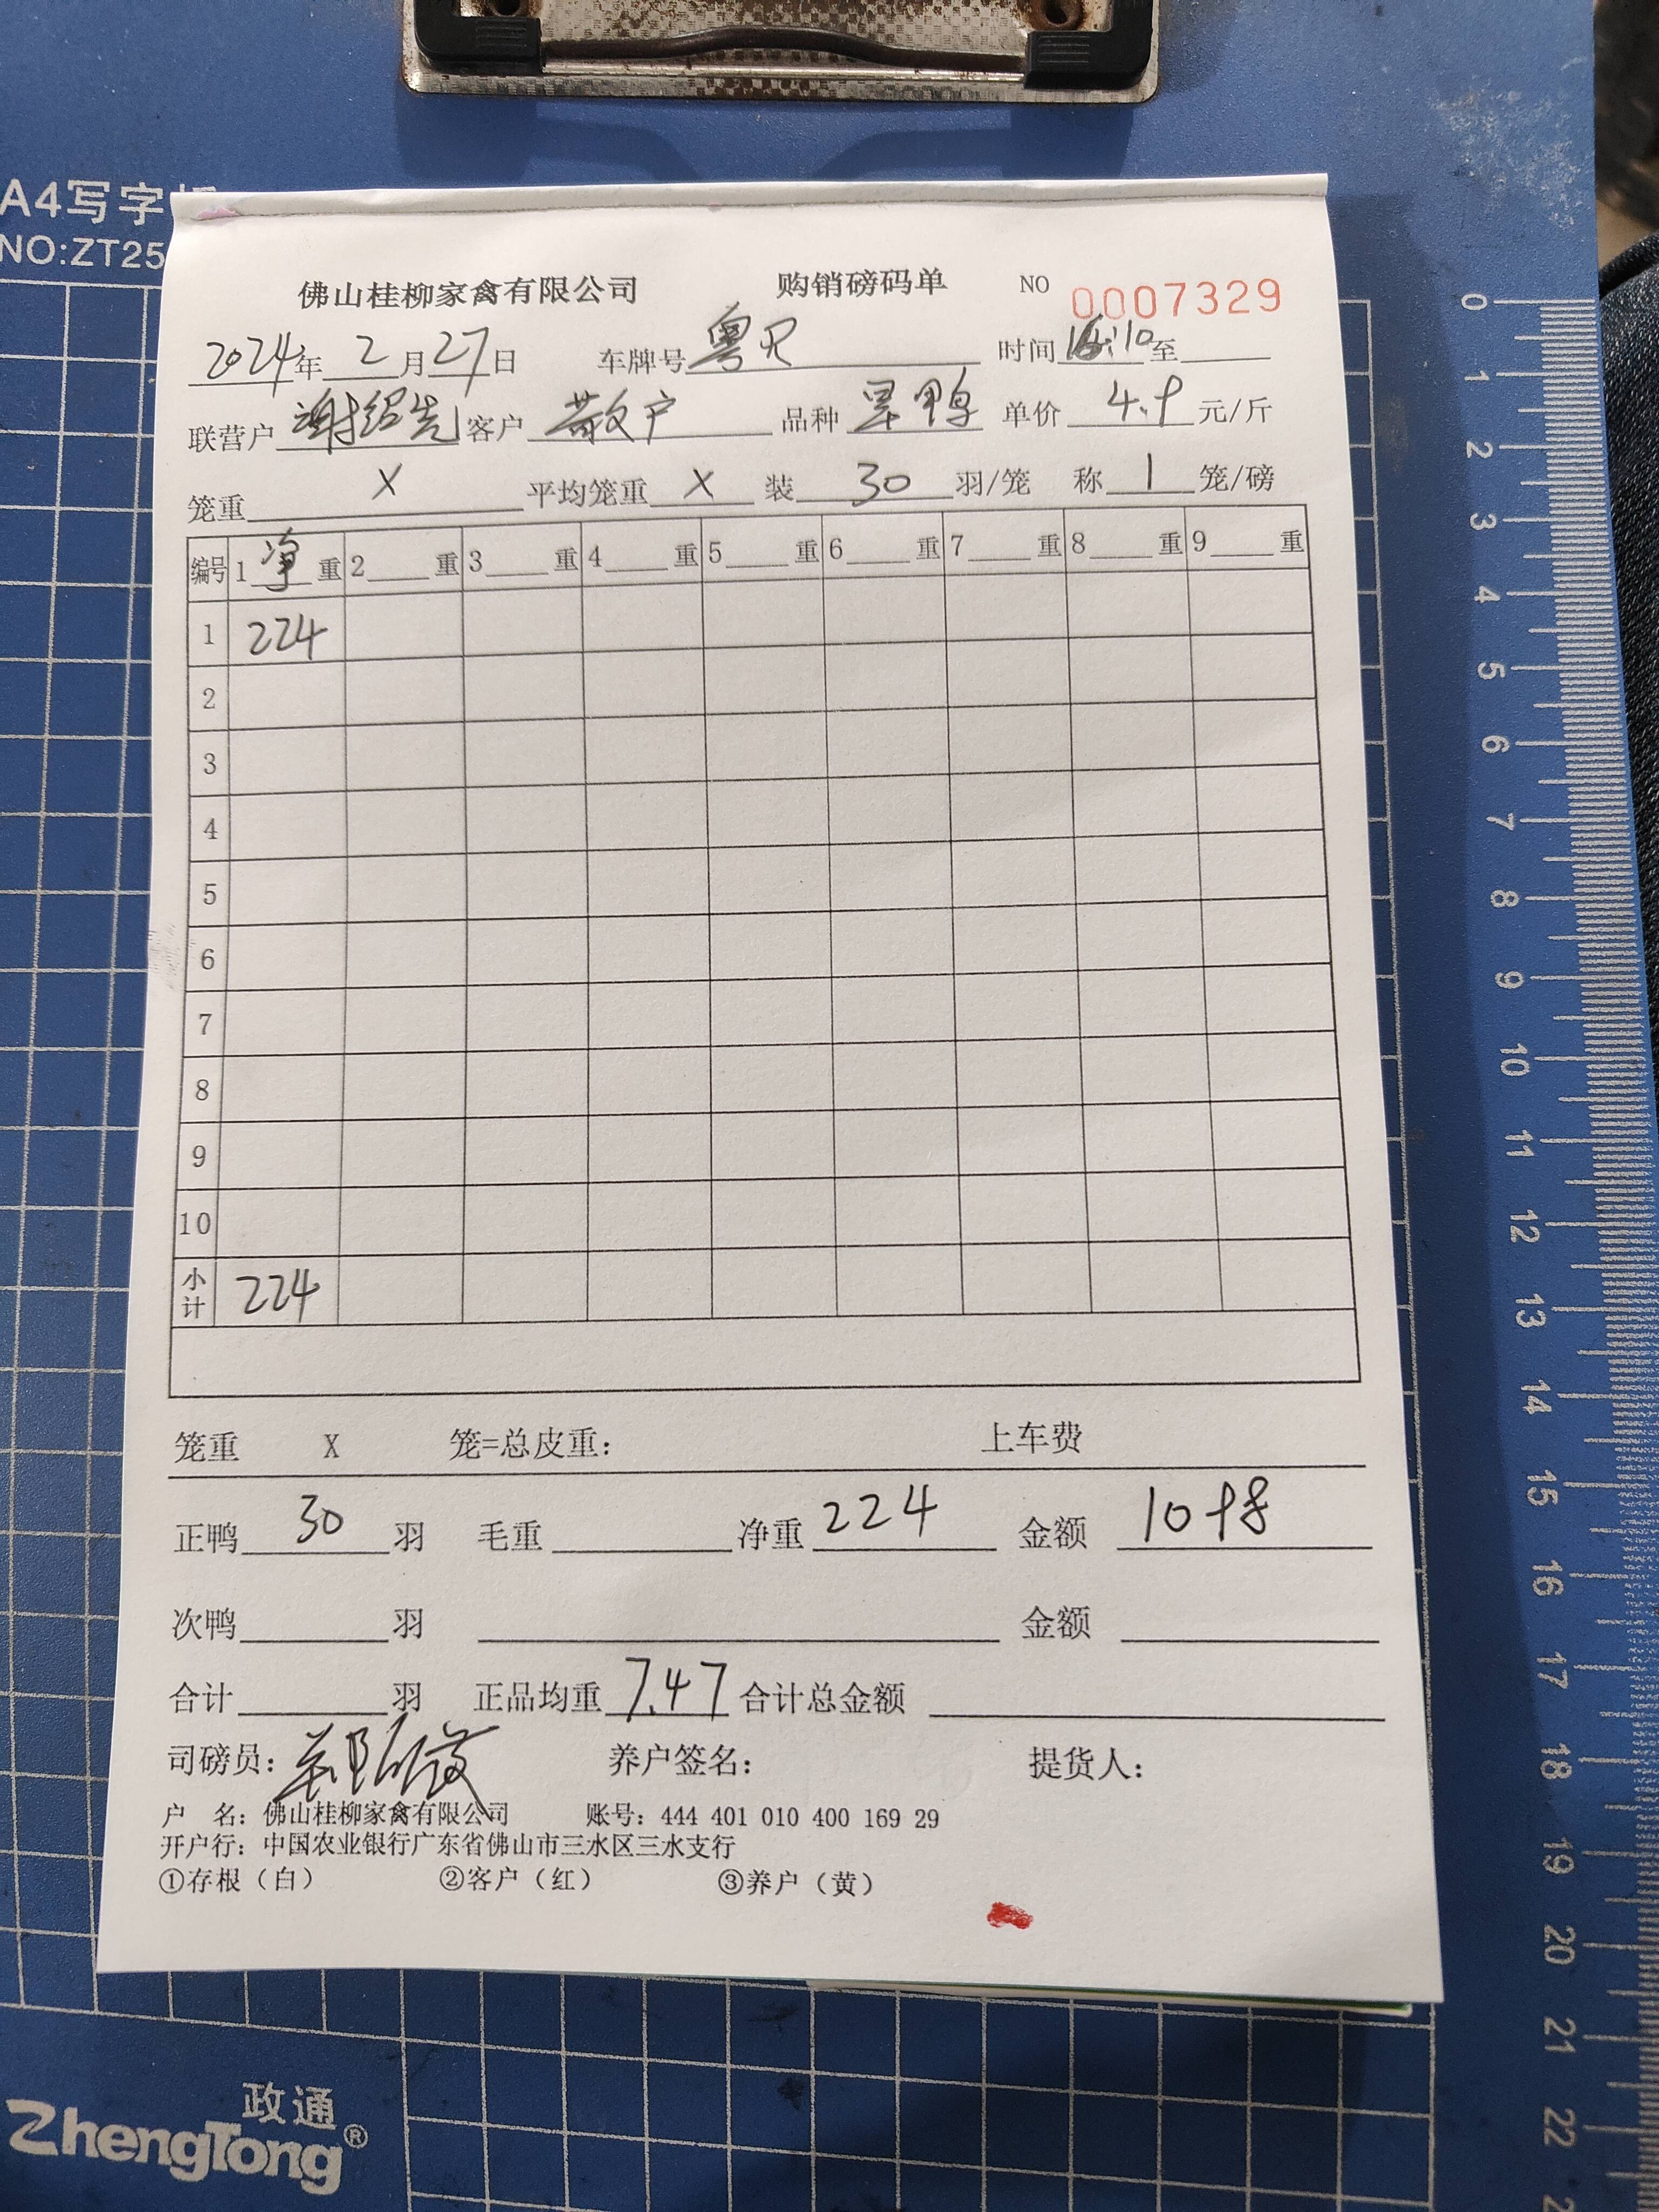 A4写字板
NO:ZT25
佛山桂柳家禽有限公司 购销磅码单 NO 0007329
2024年 2 月 27 日 车牌号 粤R 时间 16:10 至
联营户 谢绍先 客户 散户 品种 旱鸭 单价 4.9 元/斤
笼重 X 平均笼重 X 装 30 羽/笼 称 1 笼/磅
编号 1 净 重 2 重 3 重 4 重 5 重 6 重 7 重 8 重 9 重
1 224
2
3
4
5
6
7
8
9
10
小计 224
笼重 X 笼=总皮重: 上车费
正鸭 30 羽 毛重 净重 224 金额 1098
次鸭 羽 金额
合计 羽 正品均重 7.47 合计总金额
司磅员: 养户签名: 提货人:
户 名: 佛山桂柳家禽有限公司 账号: 444 401 010 400 169 29
开户行: 中国农业银行广东省佛山市三水区三水支行
①存根（白） ②客户（红） ③养户（黄）
政通
ZhengTong®
0
1
2
3
4
5
6
7
8
9
10
11
12
13
14
15
16
17
18
19
20
21
22